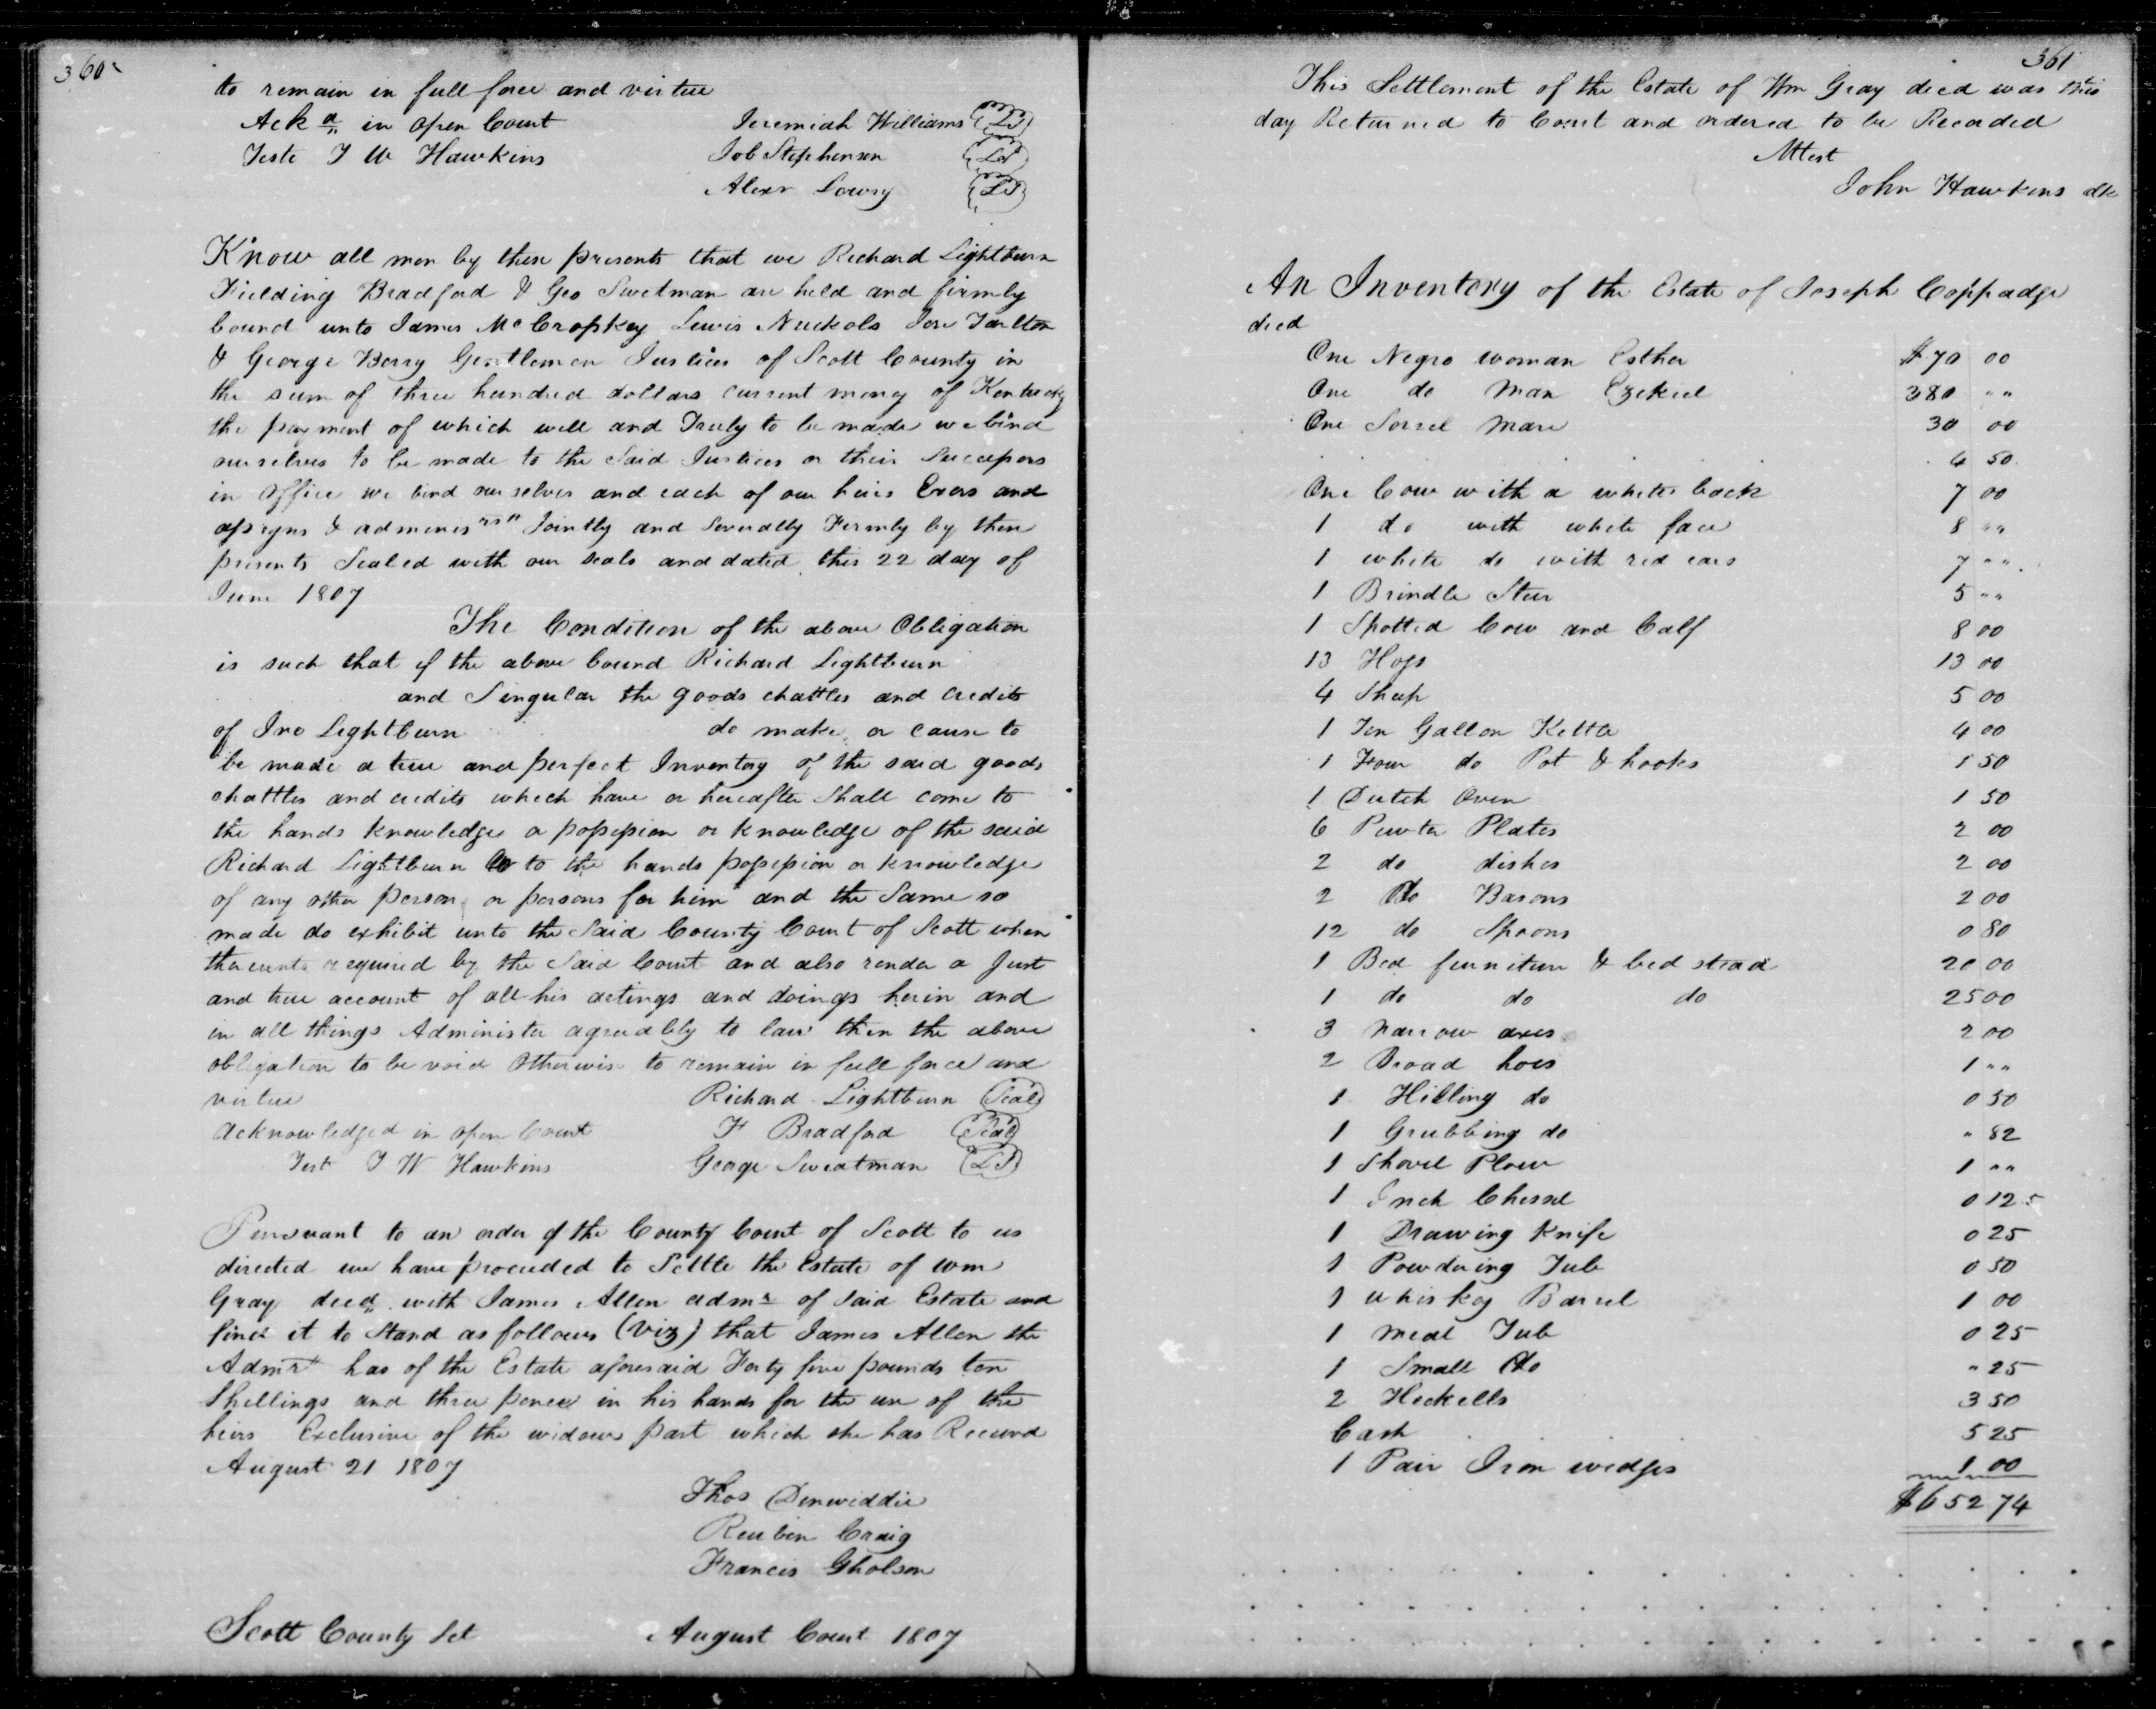 360
to remain in full force and virtue
Ackd in open Court
Teste J W Hawkins
Jeremiah Williams (LS)
Job Stephenson (LS)
Alexr Lowry (LS)
Know all men by these presents that we Richard Lightburn
Fielding Bradford & Geo Swetman are held and firmly
bound unto James McCroskey Lewis Nuckols Jere Tarlton
& George Berry Gentlemen Justices of Scott County in
the sum of three hundred dollars current money of Kentucky
the payment of which well and Truly to be made we bind
ourselves to be made to the Said Justices or their Successors
in office we bind ourselves and each of our heirs Exors and
assigns & adminesrs Jointly and Severally Firmly by these
presents Sealed with our seals and dated this 22 day of
June 1807
The Condition of the above Obligation
is such that if the above bound Richard Lightburn
and Singular the goods chattles and credits
of Jno Lightburn do make or cause to
be made a true and perfect Inventory of the said goods
chattles and credits which have or hereafter Shall come to
the hands knowledge or possession or knowledge of the said
Richard Lightburn or to the hands possession or knowledge
of any other person or persons for him and the Same so
made do exhibit unto the Said County Court of Scott when
thereunto required by the Said Court and also render a Just
and true account of all his actings and doings herin and
in all things Administer agreeably to law then the above
obligation to be void Otherwise to remain in full force and
virtue
Richard Lightburn (Seal)
acknowledged in open Court
F Bradford (Seal)
Test J W Hawkins
George Sweatman (LS)
Pursuant to an order of the County Court of Scott to us
directed we have proceeded to Settle the Estate of Wm
Gray decd with James Allen admr of Said Estate and
find it to Stand as follows (viz) that James Allen the
Admr has of the Estate aforesaid Forty five pounds ten
Shillings and three pence in his hands for the use of the
heirs Exclusive of the widows part which she has Received
August 21 1807
Thos Dinwiddie
Reuben Craig
Francis Gholson
Scott County Sct August Court 1807
361
This Settlement of the Estate of Wm Gray decd was this
day Returned to Court and ordered to be Recorded
Attest
John Hawkins clk
An Inventory of the Estate of Joseph Coppadge
decd
One Negro woman Esther $70 00
One do Man Ezekiel 380 " "
One Sorrel Mare 30 00
4 50
One Cow with a white back 7 00
1 do with white face 8 " "
1 white do with red ears 7 " "
1 Brindle Steer 5 " "
1 Spotted Cow and Calf 8 00
13 Hogs 13 00
4 Sheep 5 00
1 Ten Gallon Kettle 4 00
1 Four do Pot & hooks 1 50
1 Dutch Oven 1 50
6 Pewter Plates 2 00
2 do dishes 2 00
2 do Basons 2 00
12 do Spoons 0 80
1 Bed furniture & bed stead 20 00
1 do do do 25 00
3 Narrow axes 2 00
2 Broad hoes 1 " "
1 Hilling do 0 50
1 Grubbing do " 82
1 Shovel Plow 1 " "
1 Inch Chessel 0 12 5
1 Drawing Knife 0 25
1 Powdering Tub 0 50
1 Whiskey Barrel 1 00
1 meal Tub 0 25
1 Small do " 25
2 Heckells 3 50
Cash 5 25
1 Pair Iron wedges 1 00
$652 74